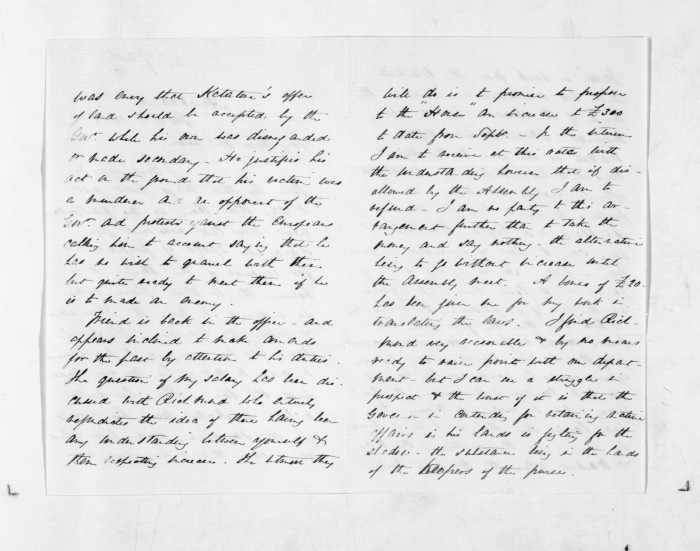 was envy that Ketuteu's offer
of land should be accepted by the
Govt. while his own was disregarded
or made secondary. He justifies his
act on the ground that his victim was
a murderer and an opponent of the
Govt. and protests against the Europeans
calling him to account saying that he
has no wish to quarrel with them
but quite ready to meet them if he
is to made an enemy.
Friend is back in the office - and
appears inclined to make amends
for the past by attention to his duties.
The question of my salary has been dis-
cussed with Richmond who entirely
repudiates the idea of there having been
any understanding between yourself &
them respecting increase. The utmost they
will do is to promise to propose
to the "House" an increase to £300
to date from Septr. - In the interim
I am to receive at this rate with
the understanding however that if dis-
allowed by the Assembly I am to
refund - I am no party to this ar-
rangement further than to take the
money and say nothing - the alternative
being to go without increase until
the Assembly meet. A bonus of £20-
has been given me for my work in
translating the laws. I find Rich-
mond very reasonable & by no means
ready to raise points with our depart-
ment - but I can see a struggle in
prospect & the worst of it is that the
Governor in contending for retaining native
affairs in his hands is fighting for the
shadow - the substance being in the hands
of the keepers of the purse.